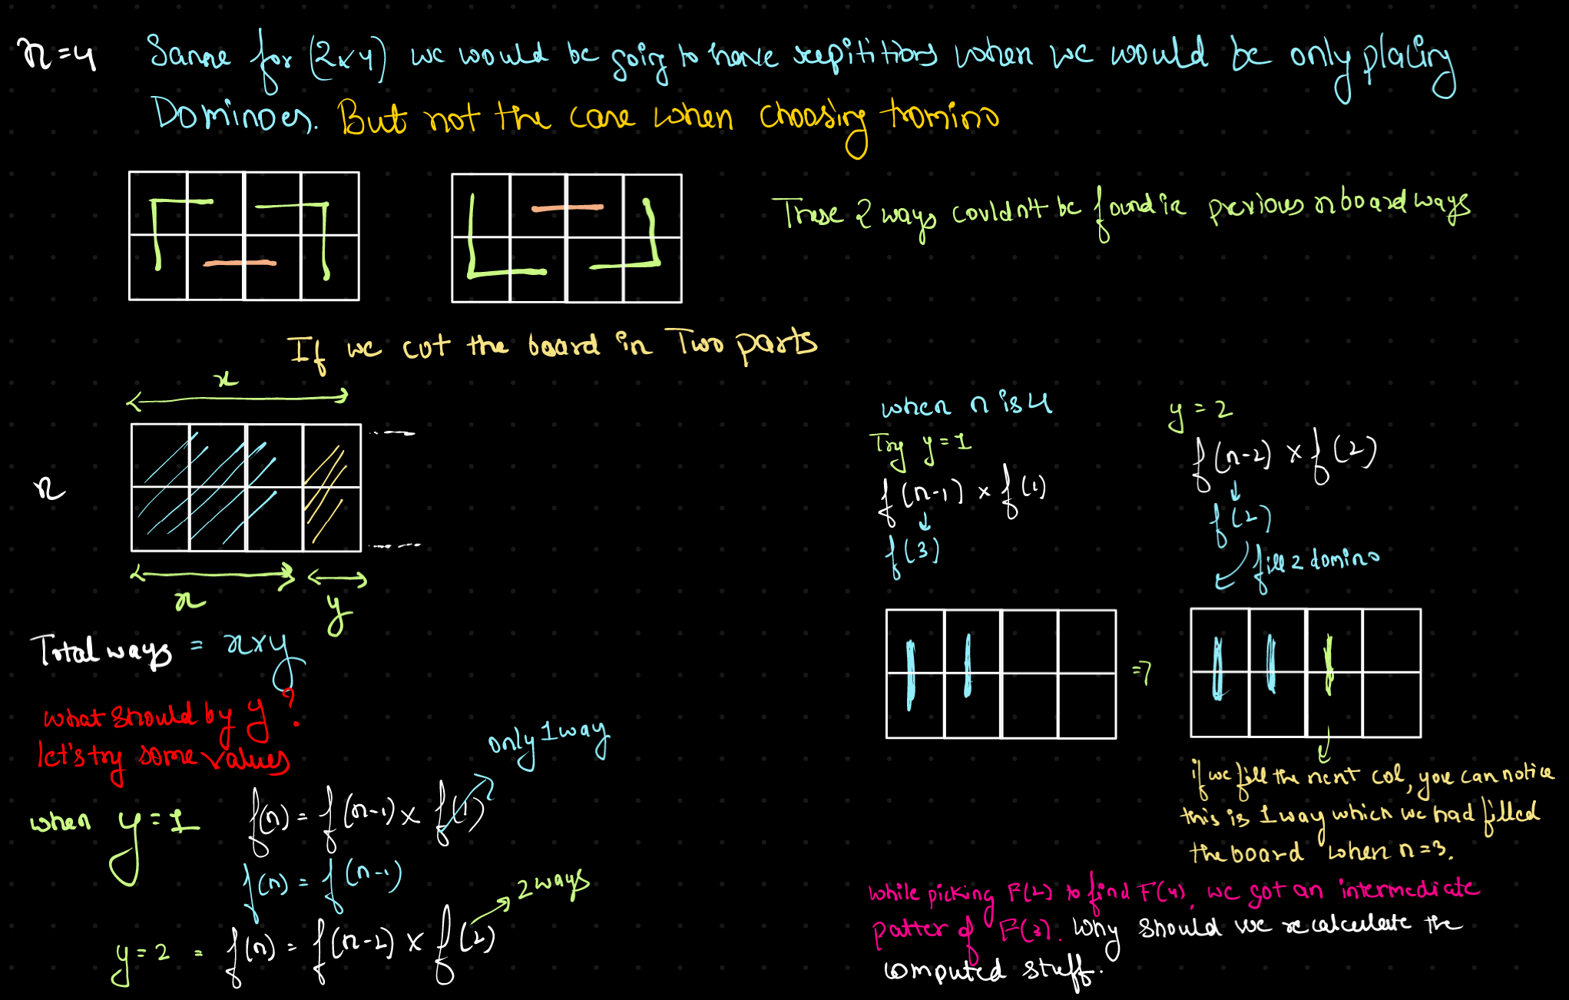 n=4 Sanne for (2x4) we would be going to have repititions when we would be only placing
Dominoes. But not the case when choosing tromino
These 2 ways couldn't be found in previous n board ways
If we cut the board in Two parts
x
n
x
y
Total ways = x x y
what should by y?
let's try some values
when y=1 f(n) = f(n-1) x f(1)
only 1 way
f(n) = f(n-1)
y=2 = f(n) = f(n-2) x f(2)
2 ways
when n is 4
Try y=1
f(n-1) x f(1)
f(3)
y = 2
f(n-2) x f(2)
f(2)
fill 2 domino
=>
if we fill the next col, you can notice
this is 1 way which we had filled
the board when n=3.
while picking F(2) to find F(4), we got an intermediate
patter of F(3). Why should we recalculate the
computed stuff.